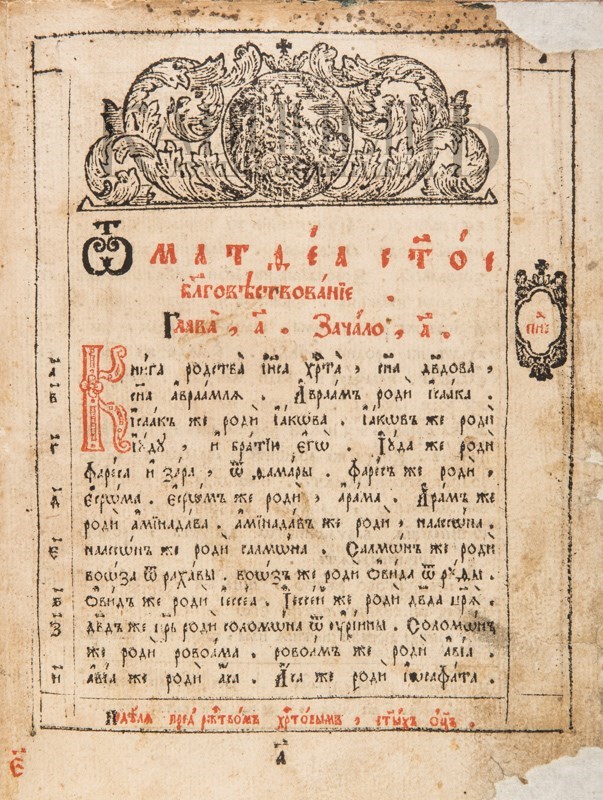 Ѿ МАТѲЕ́А СТ҃О́Е
БЛ҃ГОВѢСТВОВА́НІЕ .
Глава̀ , а҃ . Зача́ло , а҃ .
Кни́га родства̀ і҆и҃са хр҃та̀ , сн҃а дв҃дова ,
сн҃а а҆враа́млѧ . А҆враа́мъ родѝ і҆саа́ка .
І҆саа́къ же родѝ і҆а́кѡва . І҆а́кѡвъ же родѝ
і҆ꙋ́дꙋ , и҆ бра́тїи є҆гѡ̀ . І҆ꙋ́да же родѝ
фаре́са и҆ за́ра , ѿ ѳама́ры . Фаре́съ же родѝ ,
є҆срѡ́ма . є҆срѡ́мъ же родѝ , а҆ра́ма . А҆ра́мъ же
родѝ а҆мїнада́ва . а҆мїнада́въ же родѝ , наассѡ́на .
наассѡ́нъ же родѝ салмѡ́на . Салмѡ́нъ же родѝ
воѡ́за ѿ раха́вы . воѡ́зъ же родѝ ѻ҆ви́да ѿ рꙋ́ѳы .
ѻ҆ви́дъ же родѝ і҆ессе́а . І҆ессе́й же родѝ дв҃да цр҃ѧ̀ .
дв҃дъ же цр҃ь родѝ соломѡ́на ѿ ᲂу҆рі́ины . Соломѡ́нъ
же родѝ ровоа́ма . ровоа́мъ же родѝ а҆ві́а .
а҆ві́а же родѝ а҆́са . А҆́са же родѝ і҆ѡсафа́та .
Недѣ́лѧ пред̾ ржⷭ҇тво́мъ хр҃то́вымъ , ст҃ы́хъ ѻ҆ц҃ъ .
а҃